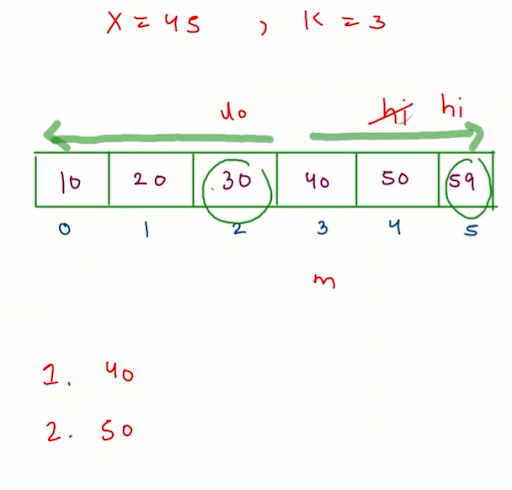 X = 45 , K = 3
lo hi hi
10 20 30 40 50 59
0 1 2 3 4 5
m
1. 40
2. 50